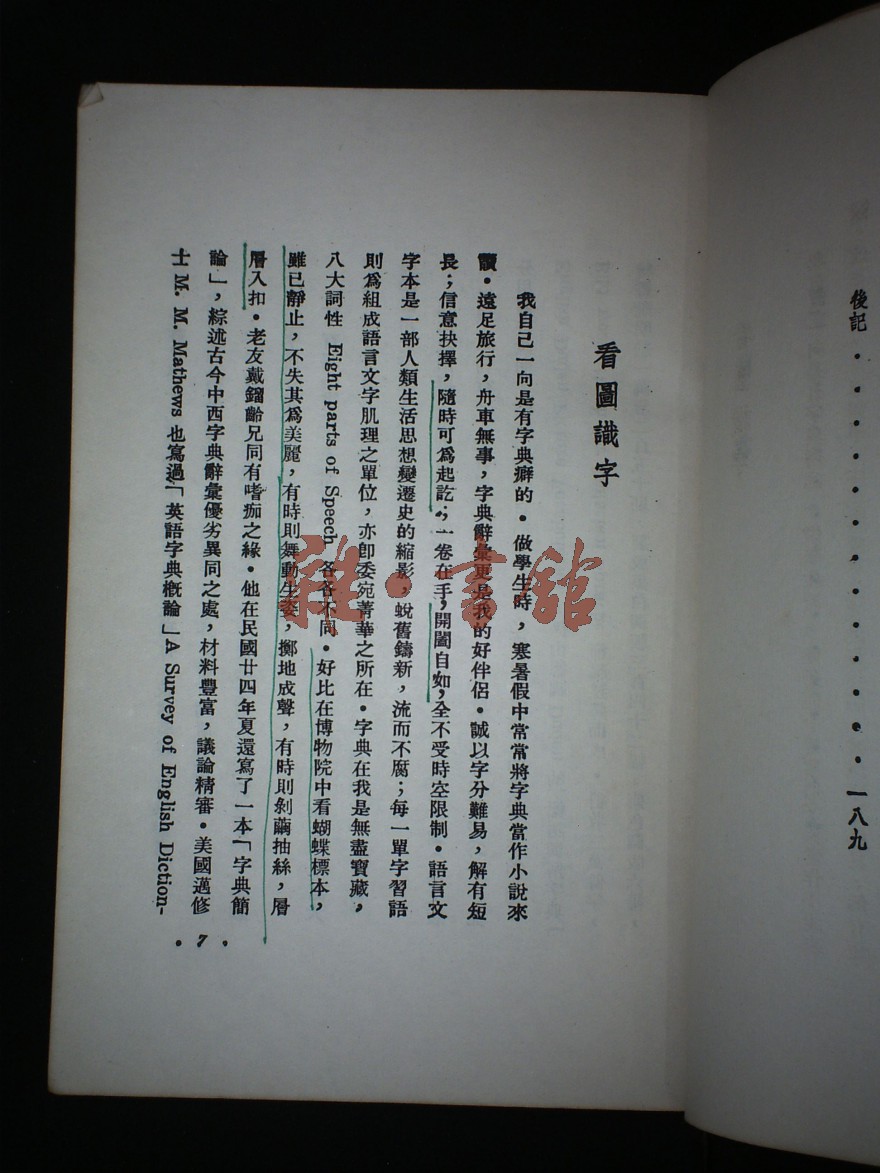 後記・・・・・・・・・・・一八九
看圖識字
我自己一向是有字典癖的・做學生時，寒暑假中常常將字典當作小說來
讀・遠足旅行，舟車無事，字典辭彙更是我的好伴侶・誠以字分難易，解有短
長；信意抉擇，隨時可爲起訖；一卷在手，開闔自如，全不受時空限制・語言文
字本是一部人類生活思想變遷史的縮影，蛻舊鑄新，流而不腐；每一單字習語
則爲組成語言文字肌理之單位，亦卽委宛菁華之所在・字典在我是無盡寶藏，
八大詞性 Eight parts of Speech 各各不同・好比在博物院中看蝴蝶標本，
雖已靜止，不失其爲美麗，有時則舞動生姿，擲地成聲，有時則剝繭抽絲，層
層入扣・老友戴鎦齡兄同有嗜痂之緣・他在民國廿四年夏還寫了一本「字典簡
論」，綜述古今中西字典辭彙優劣異同之處，材料豐富，議論精審・美國邁修
士 M. M. Mathews 也寫過「英語字典槪論」A Survey of English Diction-
・7・
雅・書舘